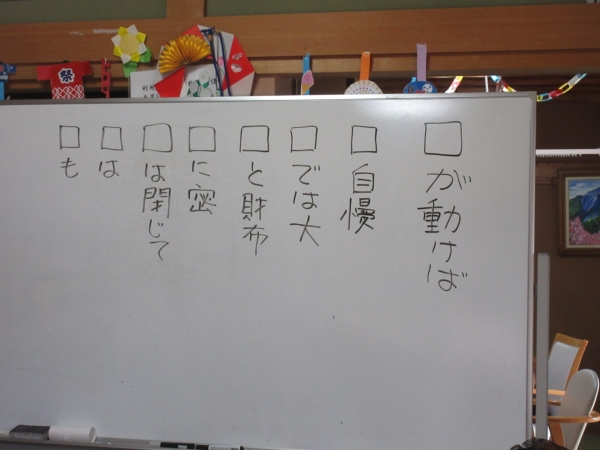 □が動けば
□自慢
□では大
□と財布
□に密
□は閉じて
□は
□も
祭